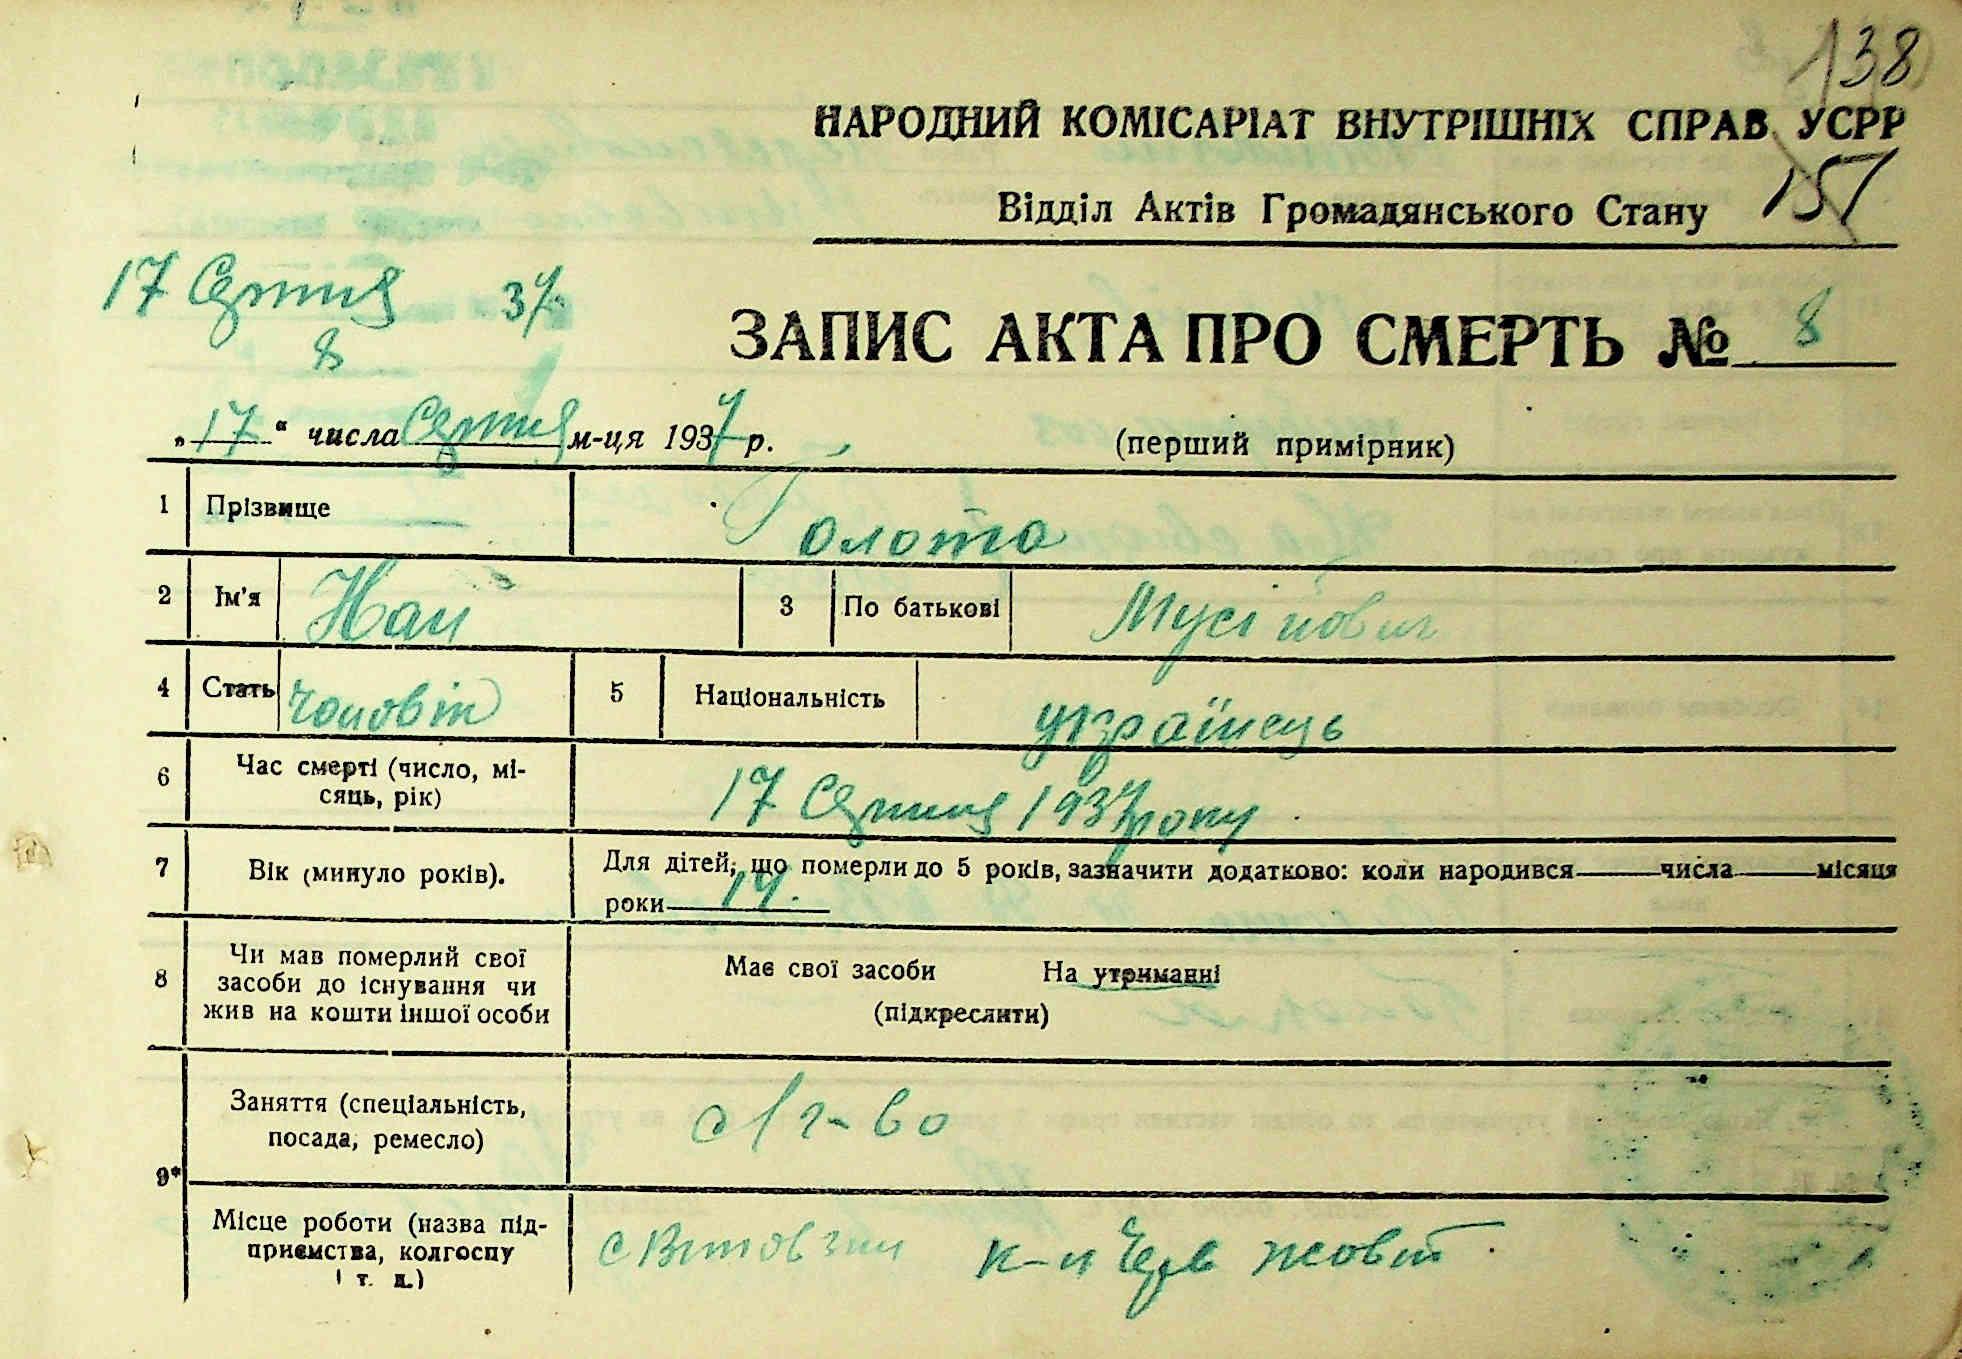 138
НАРОДНИЙ КОМІСАРІАТ ВНУТРІШНІХ СПРАВ УСРР
151
Відділ Актів Громадянського Стану
17 Серпня 34
8
ЗАПИС АКТА ПРО СМЕРТЬ № 8
„17“ числа Серпня м-ця 1934 р.
(перший примірник)
1 Прізвище Голота
2 Ім'я 3 По батькові Мусійович
4 Стать чоловік 5 Національність українець
6 Час смерті (число, мі-
сяць, рік) 17 Серпня 1934 року
7 Вік (минуло років). Для дітей, що померли до 5 років, зазначити додатково: коли народився числа місяця
роки 14.
8 Чи мав померлий свої
засоби до існування чи
жив на кошти іншої особи
Має свої засоби На утриманні
(підкреслити)
9* Заняття (спеціальність,
посада, ремесло) с/г-во
Місце роботи (назва під-
приємства, колгоспу
і т. д.) к-п Черв жовт.